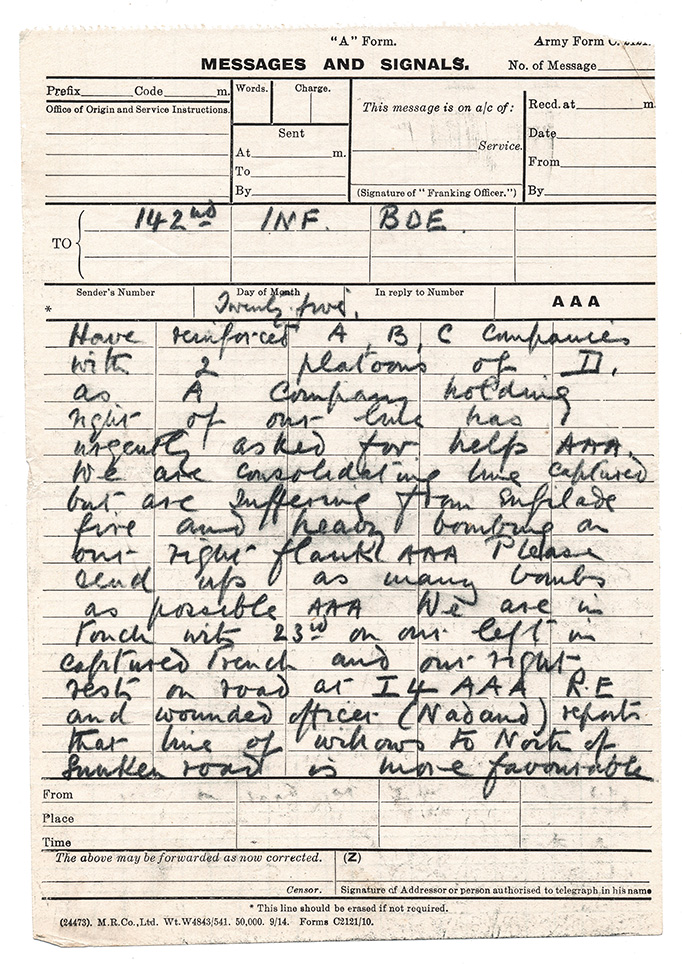 "A" Form.
Army Form C. 2121.
MESSAGES AND SIGNALS.
No. of Message
Prefix Code m.
Words. Charge.
This message is on a/c of:
Recd. at m.
Office of Origin and Service Instructions.
Sent
Date
At m.
Service.
From
To
By
(Signature of "Franking Officer.")
By
TO
142nd INF. BDE.
Sender's Number
Day of Month
In reply to Number
AAA
*
Twenty five.
Have reinforced A, B, C Companies
with 2 platoons of D,
as A Company holding
right of our line has
urgently asked for help AAA
We are consolidating line captured
but are suffering from enfilade
fire and heavy bombing on
our right flank AAA Please
send up as many bombs
as possible AAA We are in
touch with 23rd on our left in
captured trench and our right
rests on road at I4 AAA R.E
and wounded officer (Nadaud) reports
that line of willows to North of
Sunken road is more favourable
From
Place
Time
The above may be forwarded as now corrected.
(Z)
Censor.
Signature of Addressor or person authorised to telegraph in his name
* This line should be erased if not required.
(24473). M.R.Co.,Ltd. Wt.W4843/541. 50,000. 9/14. Forms C2121/10.